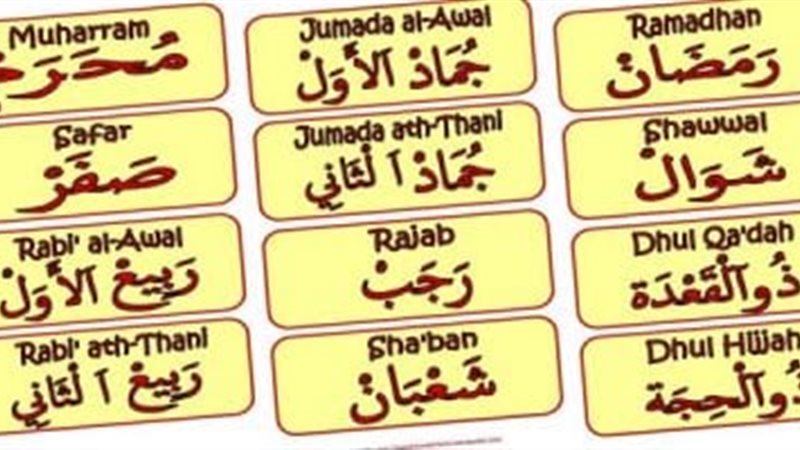 Muharram
مُحَرَم
Safar
صَفَرْ
Rabi' al-Awal
رَبِيعْ اَلأَوَلْ
Rabi' ath-Thani
رَبِيعْ اَ لْثَانِي
Jumada al-Awal
جُمَادْ اَلأَوَلْ
Jumada ath-Thani
جُمَادْ اَ لْثَانِي
Rajab
رَجَبْ
Sha'ban
شَعْبَانْ
Ramadhan
رَمَضَانْ
Shawwal
شَوَالْ
Dhul Qa'dah
ذُواَلْقَعْدَة
Dhul Hijjah
ذُواَلْحِجَة